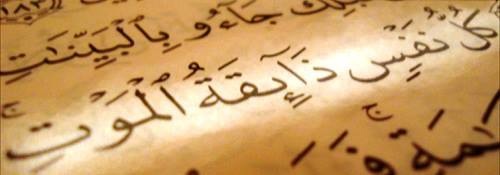 ١٨٣
جَآءُو بِٱلْبَيِّنَٰتِ
كُلُّ نَفْسٍ ذَآئِقَةُ ٱلْمَوْتِ